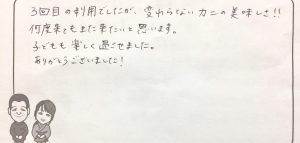 3回目の利用でしたが、変わらないカニの美味しさ!!
何度来てもまた来たいと思います。
子どもも楽しく過ごせました。
ありがとうございました!